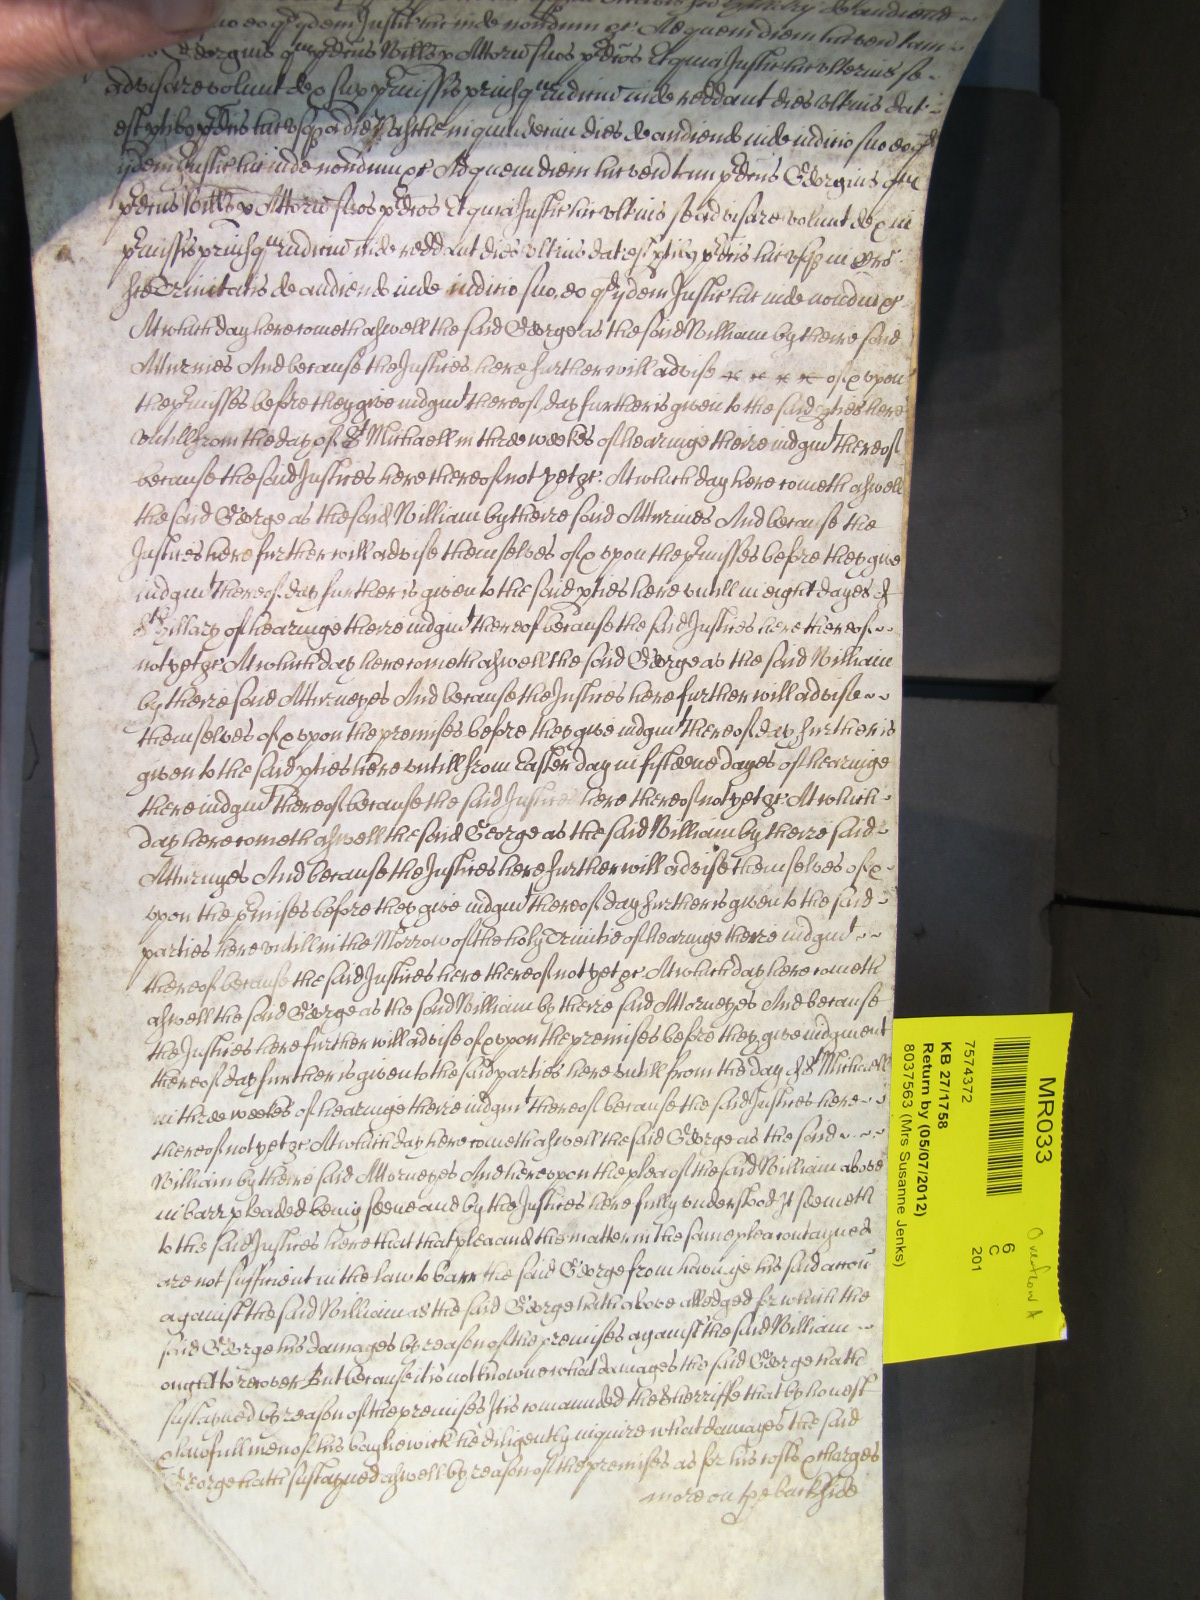 ido eo qd ijdem Justic hic inde nondum &c Ad quem diem hic ven tam
Georgius qm pdcus Willus p Attorn suos pdcos Et quia Justic hic ulterius se
advisare volunt de & sup pmissis priusqm iudiciu inde reddant dies ulterius dat
est ptibus pdcis hic usq a die Pasche in quindecim dies de audiendo inde iudicio suo eo qd
ijdem Justic hic inde nondum &c Ad quem diem hic ven tam pdcus Georgius qm
pdcus Willus p Attorn suos pdcos Et quia Justic hic ulterius se advisare volunt de & in
pmissis priusqm iudiciu inde reddant dies ulterius dat est ptibus pdcis hic usq in Cro
sce Trinitatis de audiendo inde iudicio suo, eo qd ijdem Justic hic inde nondum &c
At which day here cometh aswell the said George as the said William by theire said
Atturnies And because the Justices here further will advise of & upon
the pmisses before they give iudgmt thereof, day further is given to the said pties here
untill from the day of St Michaell in three weekes of hearinge theire iudgmt thereof
because the said Justices here thereof not yet &c. At which day here cometh aswell
the said George as the said William by theire said Atturnies And because the
Justices here further will advise themselves of & upon the pmisses before they give
iudgmt thereof day further is given to the said pties here untill in eight dayes of
St Hillary of hearinge theire iudgmt thereof because the said Justices here thereof
not yet &c At which day here cometh aswell the said George as the said William
by theire said Atturneyes And because the Justices here further will advise
themselves of & upon the premises before they give iudgmt thereof day further is
given to the said pties here untill from Easter day in fifteene dayes of hearinge
there iudgmt thereof because the said Justices here thereof not yet &c At which
day here cometh aswell the said George as the said William by theire said
Atturnyes And because the Justices here further will advise themselves of &
upon the pmises before they give iudgmt thereof day further is given to the said
parties here untill in the Morrow of the holy Trinitie of hearinge theire iudgmt
thereof because the said Justices here thereof not yet &c At which day here cometh
aswell the said George as the said William by theire said Attorneyes And because
the Justices here further will advise of & upon the premises before they give iudgment
thereof day further is given to the said parties here untill from the day of St Michaell
in three weekes of hearinge theire iudgmt thereof because the said Justices here
thereof not yet &c At which day here cometh aswell the said George as the said
William by theire said Attorneyes And hereupon the plea of the said William above
in barr pleaded being seene and by the Justices here fully understood It seemeth
to the said Justices here that that plea and the matter in the same plea contayned
are not sufficient in the law to barr the said George from havinge his said accon
against the said William as the said George hath above alledged for which the
said George his damages by reason of the premises against the said William
ought to recover But because it is not knowne what damages the said George hath
sustayned by reason of the premises It is comaunded the Sherriffe that by honest
& lawfull men of his bayliewick he diligently inquire what damages the said
George hath sustayned aswell by reason of the premises as for his costs & charges
more on the backside
MR033
6
C
201
Overflow A
7574372
KB 27/1758
Return by (05/07/2012)
8037563 (Mrs Susanne Jenks)